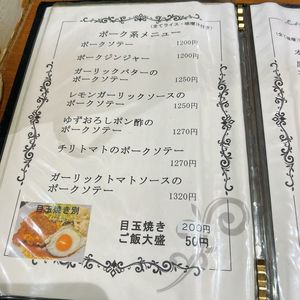 ポーク系メニュー
(全てライス・味噌汁付き)
ポークソテー
1200円
ポークジンジャー
1200円
ガーリックバターの
ポークソテー
1250円
レモンガーリックソースの
ポークソテー
1250円
ゆずおろしポン酢の
ポークソテー
1270円
チリトマトのポークソテー
1270円
ガーリックトマトソースの
ポークソテー
1320円
目玉焼き別
目玉焼き 200円
ご飯大盛 50円